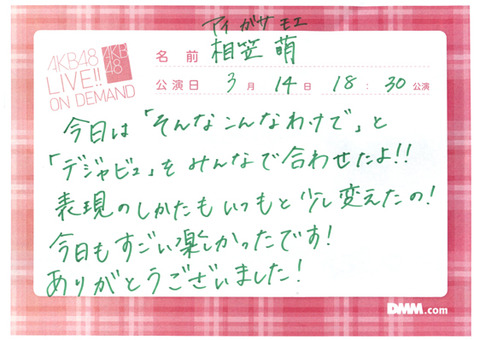 アイガサモエ
AKB48
LIVE!!
ON DEMAND
AKB
48
名前 相笠 萌
公演日 3月 14日 18:30公演
今日は「そんなこんなわけで」と
「デジャビュ」をみんなで合わせたよ!!
表現のしかたもいつもと少し変えたの!
今日もすごい楽しかったです!
ありがとうございました!
DMM.com